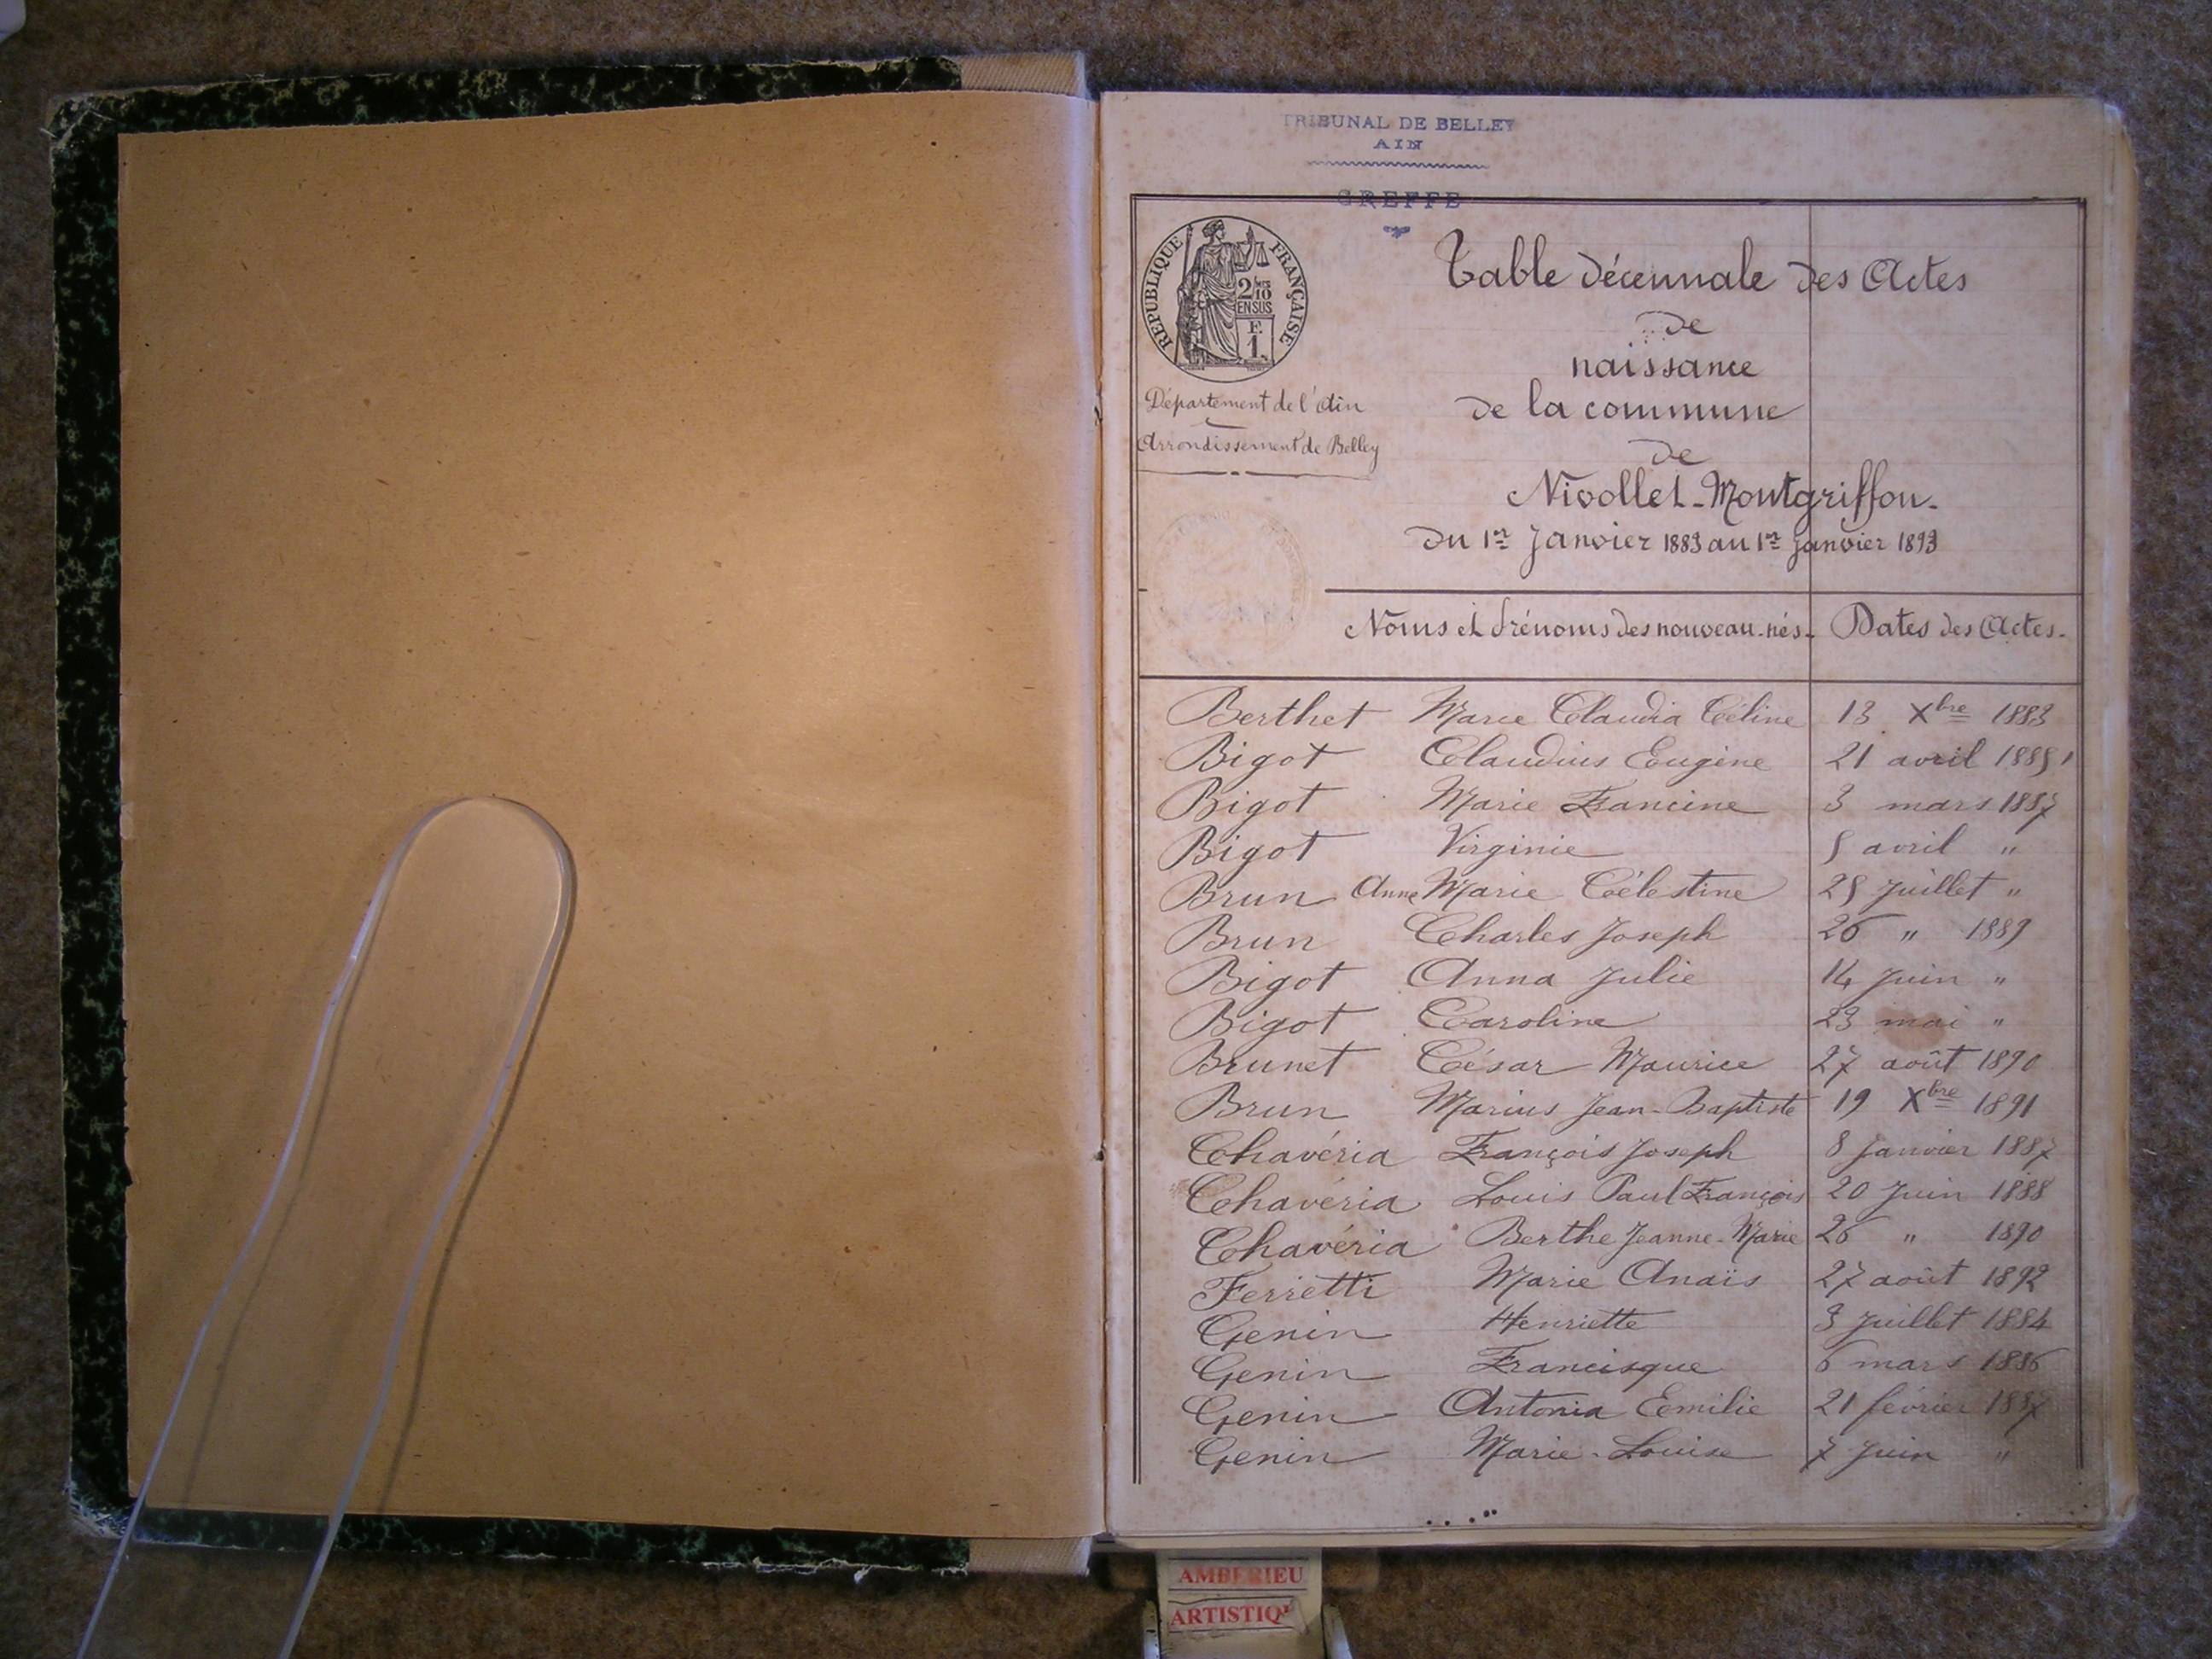 TRIBUNAL DE BELLEY
AIN
GREFFE
REPUBLIQUE FRANÇAISE
2/10
EN SUS
F.
1.
Table décennale des Actes
de
naissance
de la commune
de
Nivollet-Montgriffon.
Du 1er Janvier 1883 au 1er Janvier 1893
Département de l'Ain
Arrondissement de Belley
Noms et Prénoms des nouveau-nés. Dates des Actes.
Berthet Marie Claudia Céline 13 Xbre 1883
Bigot Claudius Eugène 21 avril 1885
Bigot Marie Francine 3 mars 1887
Bigot Virginie 5 avril "
Brun Anne Marie Célestine 25 Juillet "
Brun Charles Joseph 26 " 1889
Bigot Anna Julie 14 Juin "
Bigot Caroline 23 mai "
Brunet César Maurice 27 août 1890
Brun Marius Jean-Baptiste 19 Xbre 1891
Chavéria François Joseph 8 Janvier 1887
Chavéria Louis Paul François 20 Juin 1888
Chavéria Berthe Jeanne-Marie 26 " 1890
Ferretti Marie Anaïs 27 août 1892
Genin Henriette 3 Juillet 1884
Genin Francisque 6 mars 1886
Genin Antonia Emilie 21 février 1887
Genin Marie-Louise 7 Juin "
AMBERIEU
ARTISTIQ